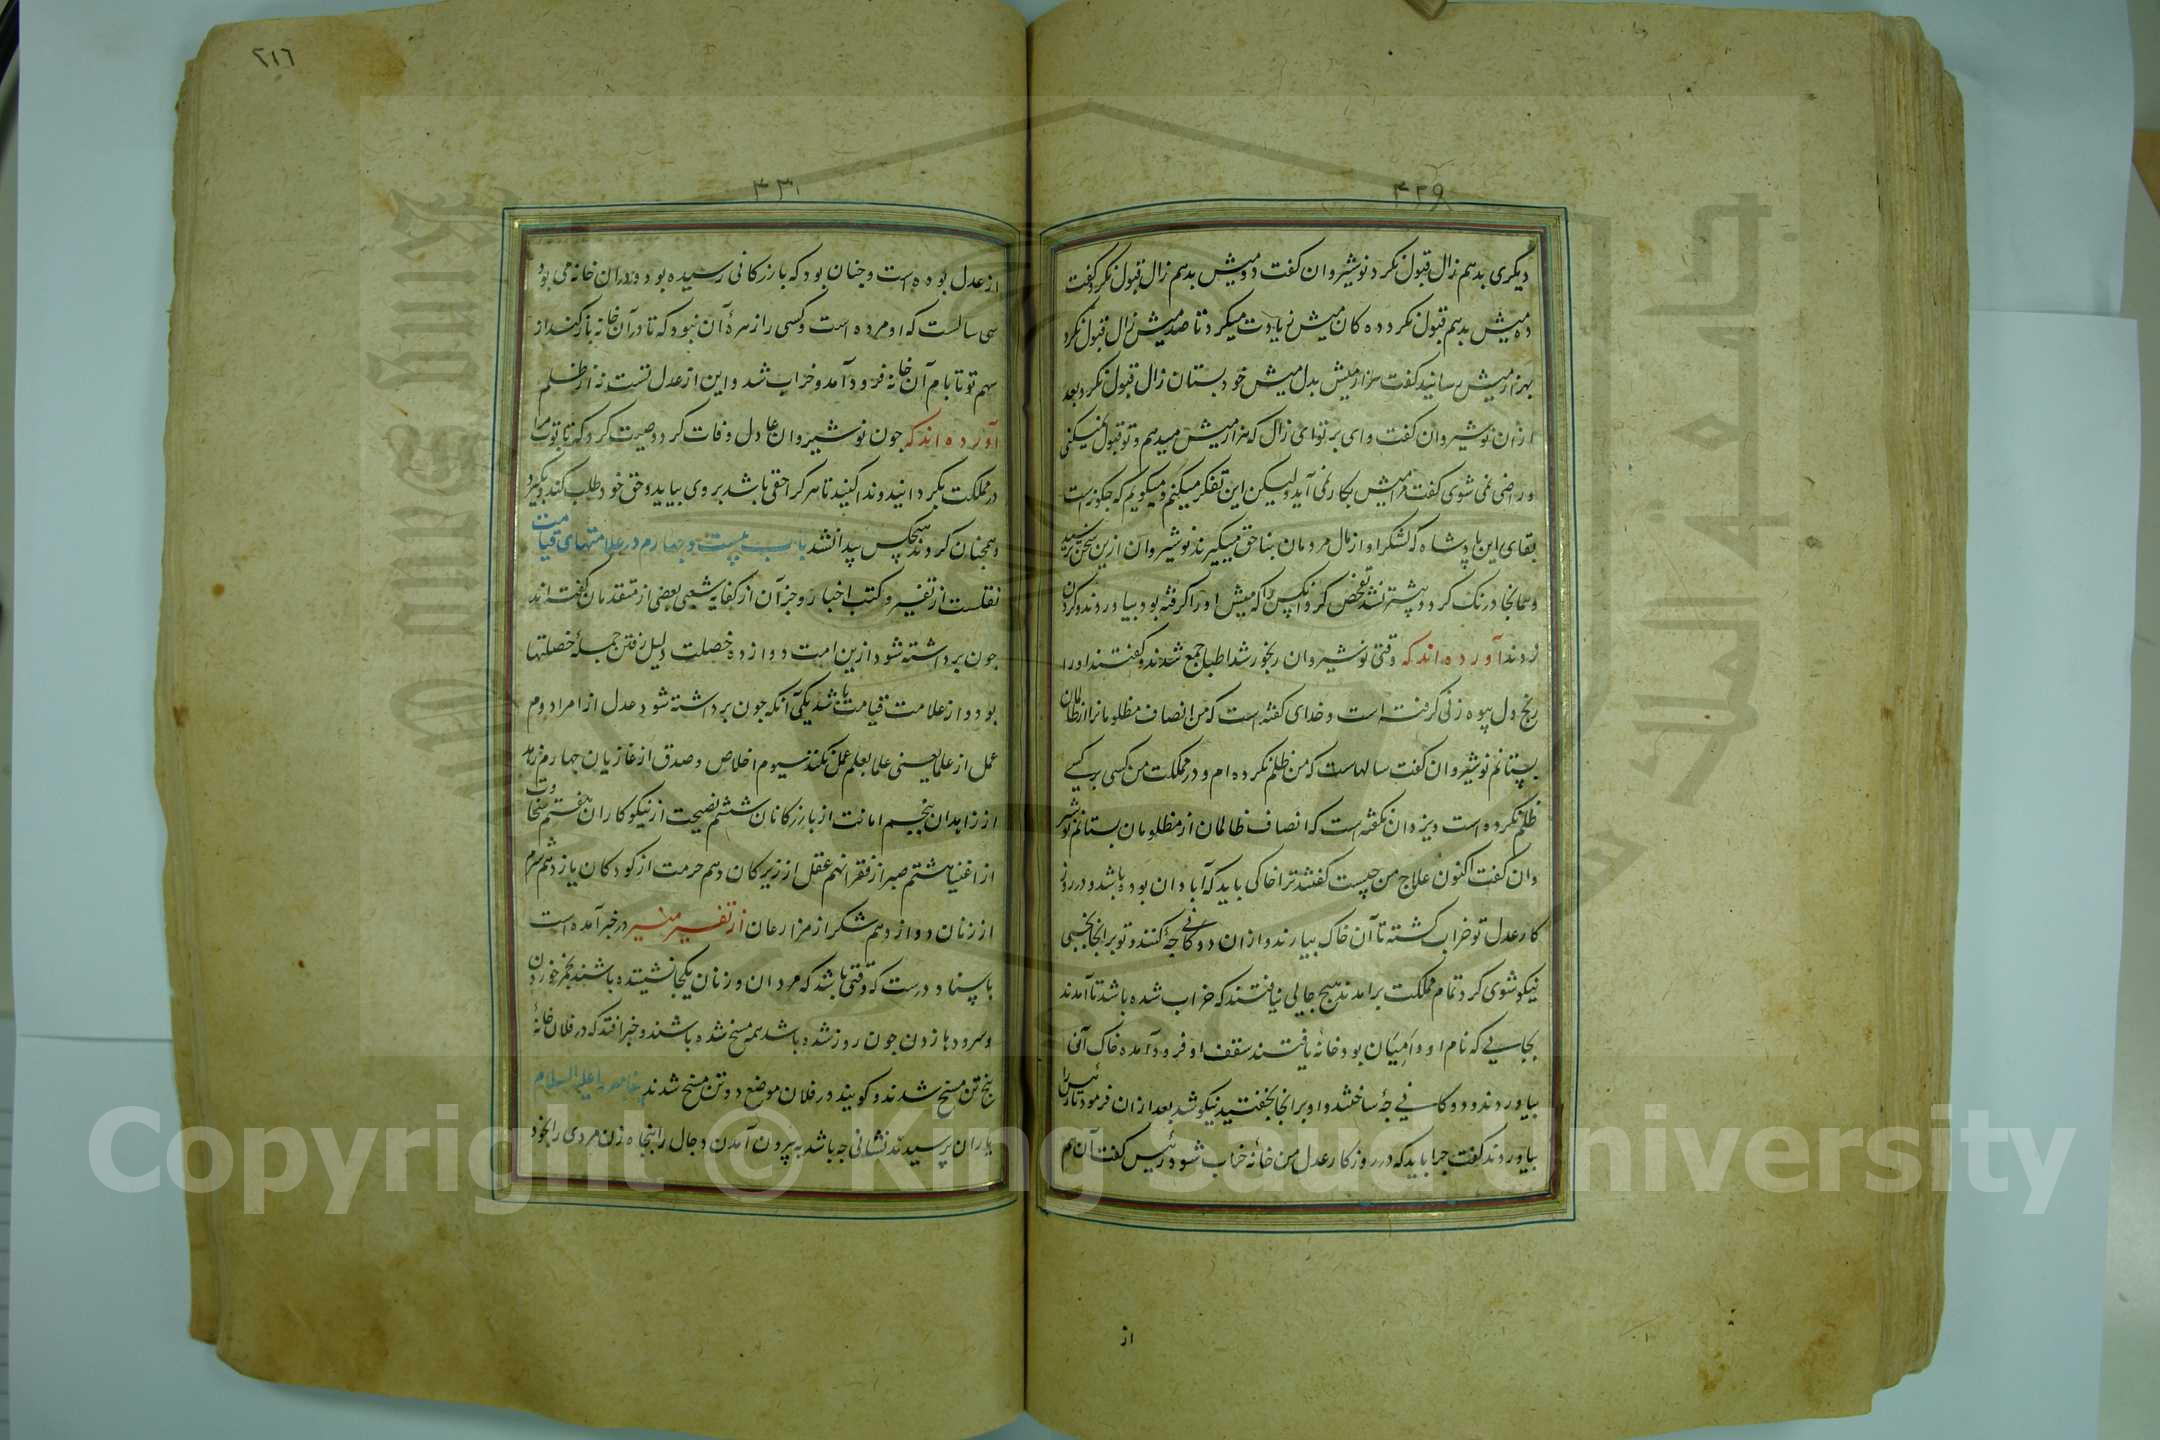 ۴۲۹
دیکری بدهم زال قبول نکرد نوشیروان کفت دومیش بدهم زال قبول نکرد کفت
ده میش بدهم قبول نکرد ده کان میش زیادت میکرد تا صد میش زال قبول نکرد
بهزار میش رسانید کفت هزار میش بدل میش خود بستان زال قبول نکرد بعد
ازان نوشیروان کفت وای بر تو ای زال که هزار میش میدهم و تو قبول نمیکنی
و راضی نمی شوی کفت مرا میش بکار نمی آید ولیکن این تفکر میکنم و میکویم که چکونه است
بقای این پادشاه که لشکر او از مال مردمان بناحق میکیرند نوشیروان ازین سخن بترسید
و همانجا درنک کرد و پیشتر نشد تفحص کرد و انکس را که میش او را کرفته بود بیاوردند و کردن
زدند آورده اند که وقتی نوشیروان رنجور شد اطبا جمع شدند و کفتند او را
رنج دل بیوه زنی کرفته است و خدای کفته است که من انصاف مظلومان از ظالمان
بستانم نوشیروان کفت سالهاست که من ظلم نکرده ام و در مملکت من کسی بر کسی
ظلم نکرده است و یزدان نکفته است که انصاف ظالمان از مظلومان بستانم نوشیر
وان کفت اکنون علاج من چیست کفتند ترا خاکی باید که آبادان بوده باشد و در روز
کار عدل تو خراب کشته تا آن خاک بیارند و ازان دوکانی جۀ کنند و تو بر انجا بخسبی
نیکو شوی کرد تمام مملکت برامدند هیچ جایی نیافتند که خراب شده باشد تا آمدند
بجایی که نام او وامیان بود خانۀ یافتند سقف او فرود آمده خاک آن
بیاوردند و دوکانی جۀ ساختند و او بر انجا بخفتید نیکو شد بعد ازان فرمود تا رئیس را
بیاوردند کفت چرا باید که در روز کار عدل من خانۀ خراب شود رئیس کفت آن هم
از
۲۱۶
۴۳۱
از عدل بوده است و چنان بود که بازرکانی رسیده بود و دران خانه می بود
سی سالست که او مرده است و کسی را زهرۀ آن نبود که تا در آن خانه باز کند از
سهم تو تا بام آن خانه فرود آمد و خراب شد و این از عدل تست نه از ظلم
آورده اند که چون نوشیروان عادل وفات کرد وصیت کرد که تابوت مرا
در مملکت بکردانید و ندا کنید تا هر کرا حقی باشد بر وی بیاید و حق خود طلب کند و بکیرد
و همچنان کردند هیچکس پیدا نشد باب بیست و چهارم در علامتهای قیامت
نقلست از تفسیر و کتب اخبار و جز آن از کفایه شعبی بعضی از متقدمان کفته اند
چون برداشته شود ازین امت دوازده خصلت دلیل رفتن جملۀ خصلتها
بود و از علامت قیامت باشد یکی آنکه چون برداشته شود عدل از امرا دوم
عمل از علما یعنی علما بعلم عمل نکنند سیوم اخلاص و صدق از غازیان چهارم زهد
از زاهدان پنجم امانت از بازرکانان ششم نصیحت از نیکوکاران هفتم سخاوت
از اغنیا هشتم صبر از فقرا نهم عقل از زیرکان دهم حرمت از کودکان یازدهم شرم
از زنان دوازدهم شکر از مزارعان از تفسیر منیر در خبر آمده است
باسناد درست که وقتی باشد که مردان و زنان یکجا نشیننده باشند بخمر خوردن
و سرودها زدن چون روز شده باشد همه مسخ شده باشند و خبر افتد که در فلان خانۀ
پنج تن مسخ شدند و کویند در فلان موضع دو تن مسخ شدند پیغامبر را علیه السلام
یاران پرسیدند نشانی چه باشد به بیرون آمدن دجال را پنجاه زن مردی را بخود